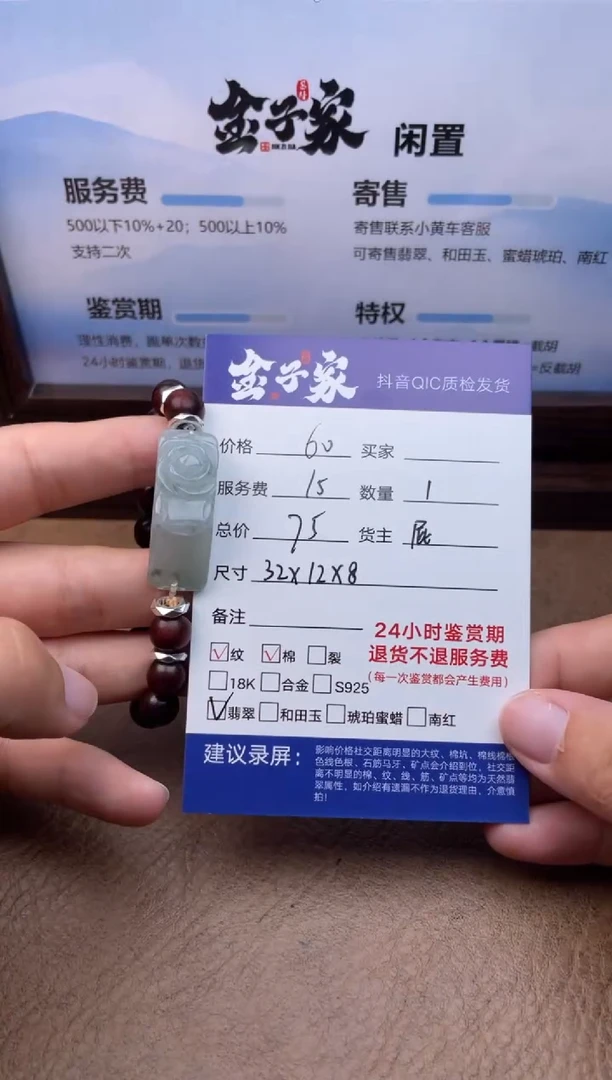 金子家 闲置
服务费
500以下10%+20；500以上10%
支持二次
寄售
寄售联系小黄车客服
可寄售翡翠、和田玉、蜜蜡琥珀、南红
鉴赏期
理性消费，
24小时鉴赏期，退货
特权
截胡
=反截胡
金子家 抖音QIC质检发货
价格 60 买家
服务费 15 数量 1
总价 75 货主
尺寸 32X12X8
备注
24小时鉴赏期
退货不退服务费
(每一次鉴赏都会产生费用)
纹 棉 裂
18K 合金 S925
翡翠 和田玉 琥珀蜜蜡 南红
建议录屏：
影响价格社交距离明显的大纹、棉坑、棉线棉
色线色根、石筋马牙，矿点会介绍到位，社交距
离不明显的棉、纹、线、筋、矿点等均为天然翡
翠属性，如介绍有遗漏不作为退货理由，介意慎
拍！